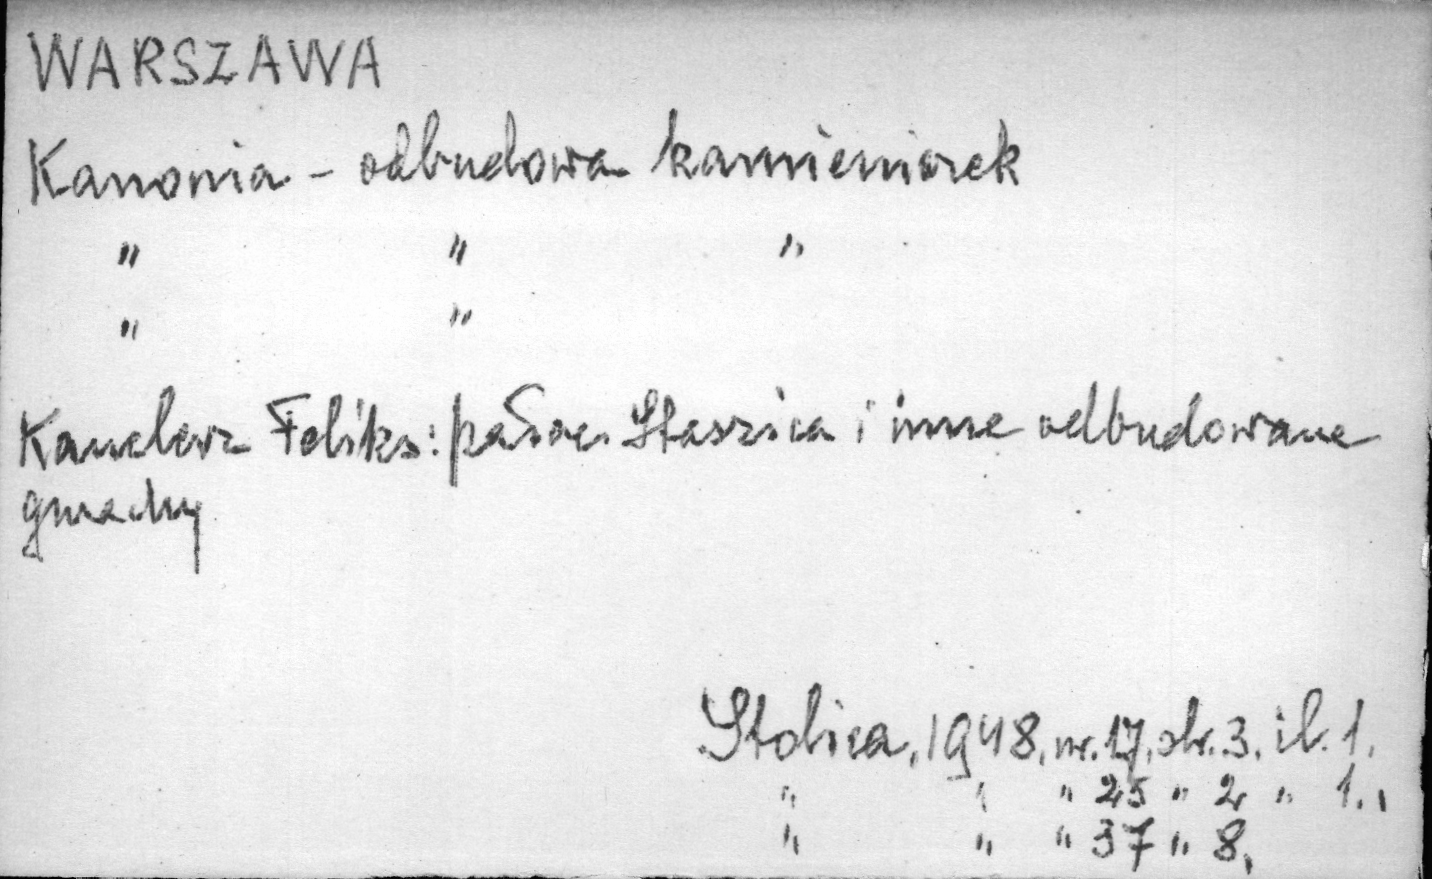 WARSZAWA
Kanonia - odbudowa kamieniczek
" " "
" "
Kanclerz Feliks: pałac Staszica i inne odbudowane
gmachy
Stolica, 1948, nr. 17, str. 3, il. 1.
" " " 25 " 2 " 1.,
" " " 37 " 8,